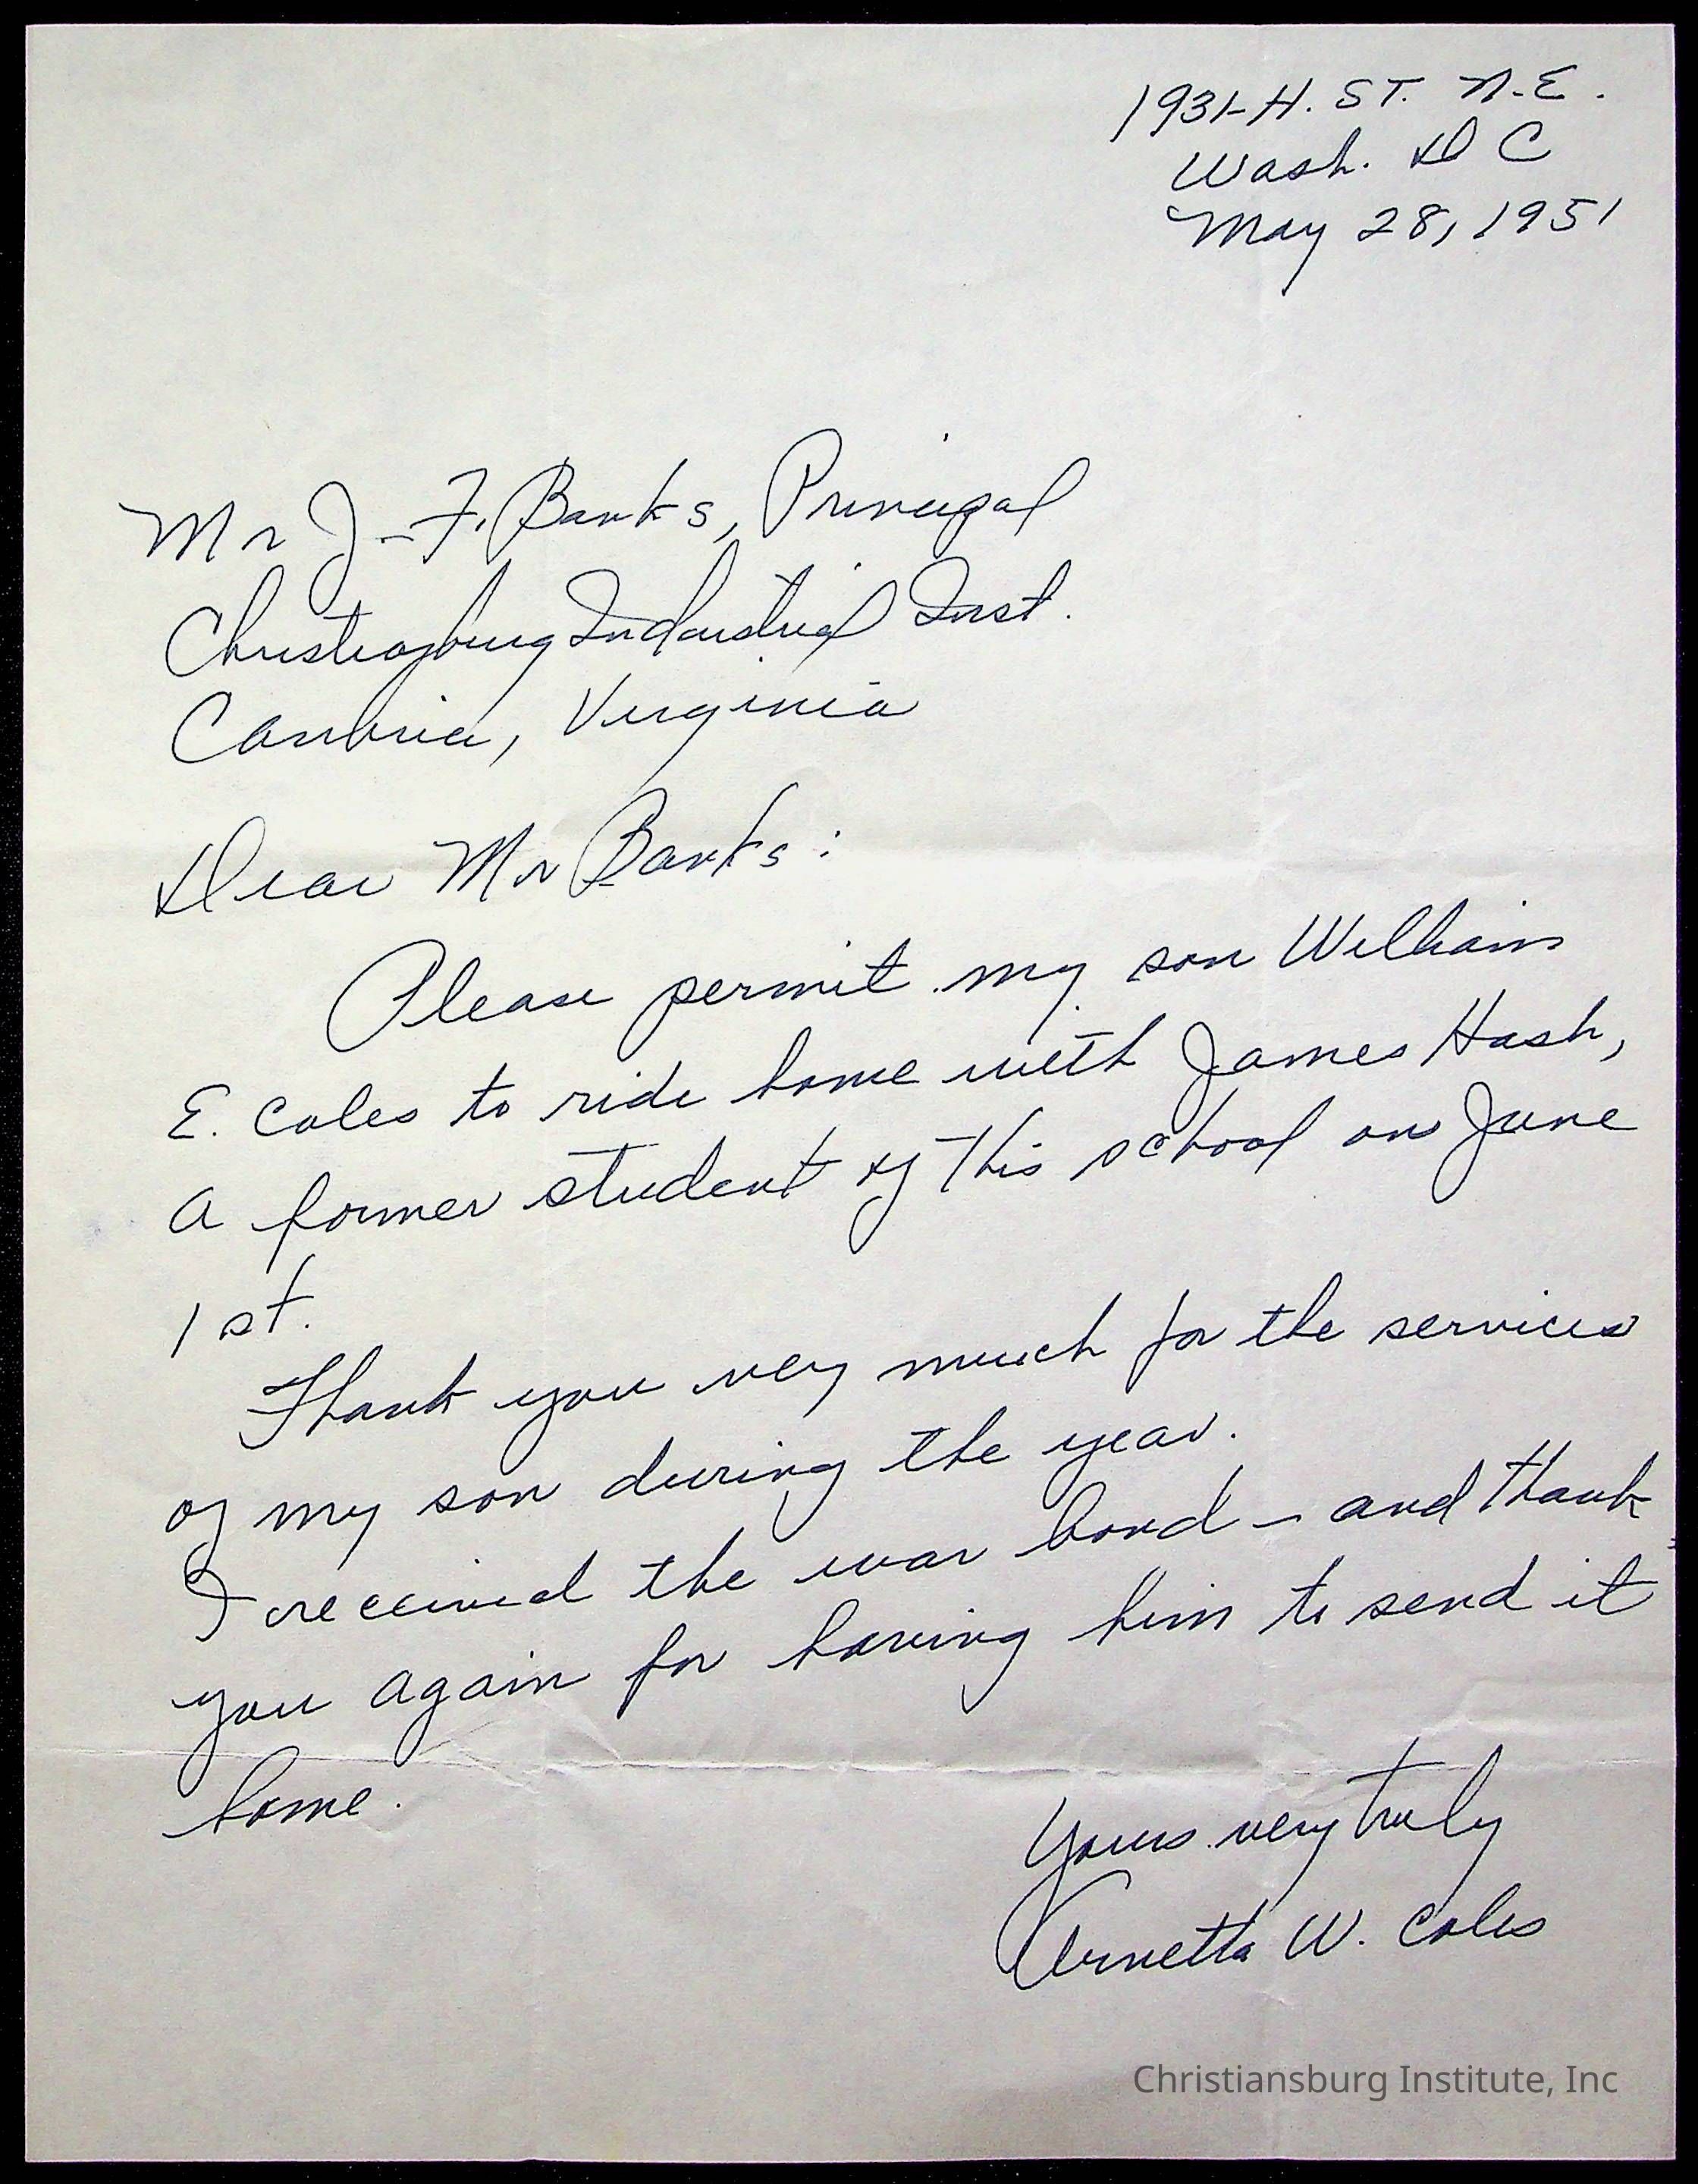 1931-H. ST. N.E.
Wash. D C
May 28, 1951
Mr J-F. Banks, Principal
Christiansburg Industrial Inst.
Cambria, Virginia
Dear Mr Banks:
Please permit my son William
E. Coles to ride home with James Hash,
a former student of this school on June
1st.
Thank you very much for the services
of my son during the year.
I received the war bond - and thank
you again for having him to send it
home.
Yours very truly
W. Coles
Christiansburg Institute, Inc